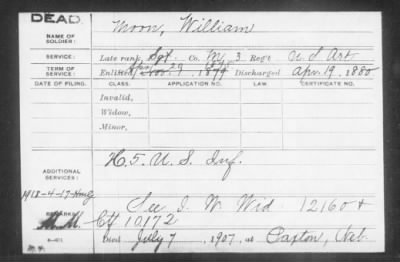 DEAD.
NAME OF SOLDIER: Moon, William
SERVICE: Late rank, Sgt. Co. M, 3 Reg't U S Art
TERM OF SERVICE: Enlisted Nov. 29, 1879 Discharged Apr. 19, 1880
DATE OF FILING. CLASS. APPLICATION NO. LAW. CERTIFICATE NO.
Invalid,
Widow,
Minor,
H. 5. U. S. Inf.
ADDITIONAL SERVICES:
1918-4-17
See I. W. Wid 12160
REMARKS: Ctf 10172
Died July 7, 1907, at Paxton, Neb.